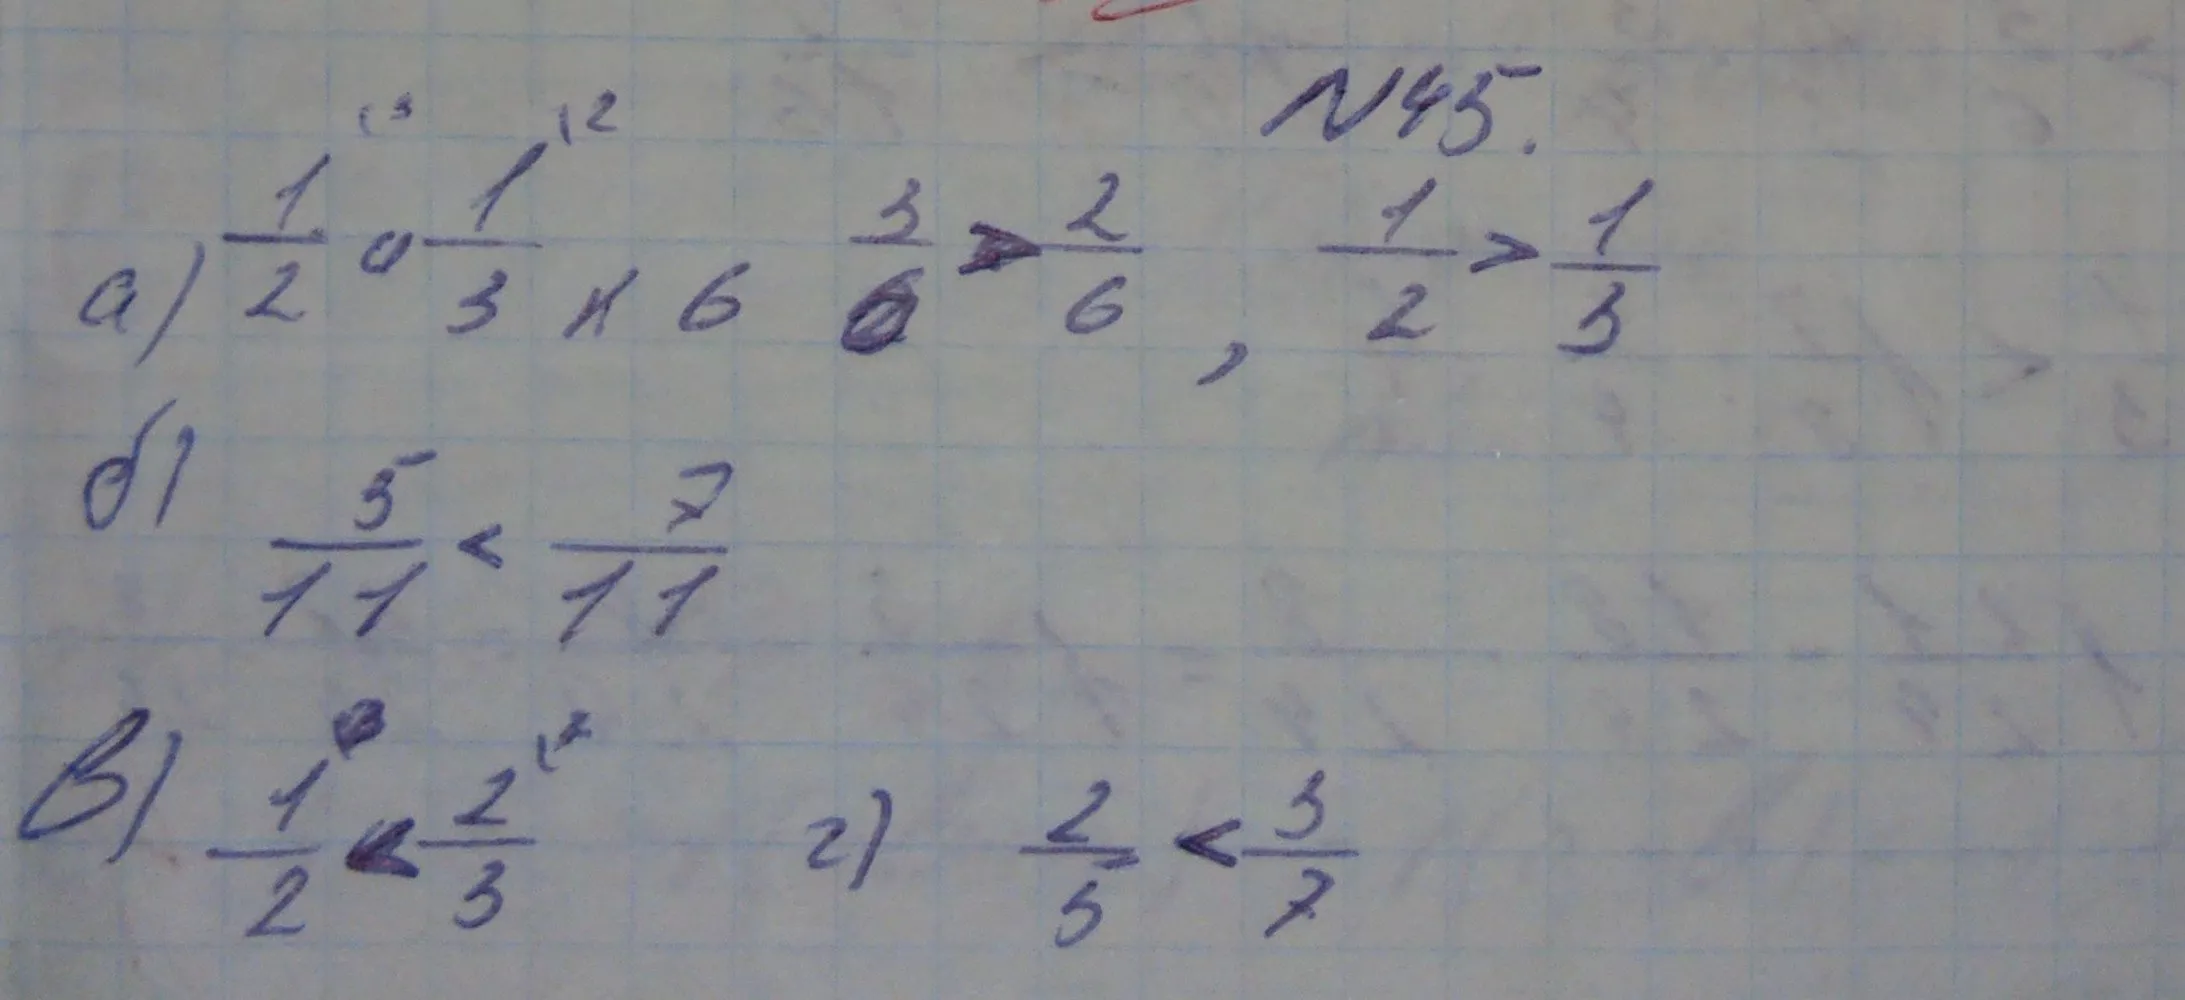 N45.
а) 1/2 \3 и 1/3 \2 к 6 3/6 > 2/6, 1/2 > 1/3
б) 5/11 < 7/11
в) 1/2 \3 < 2/3 \2 г) 2/5 < 3/7